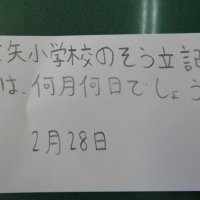 矢小学校のそう立記
は、何月何日でしょう
2月28日